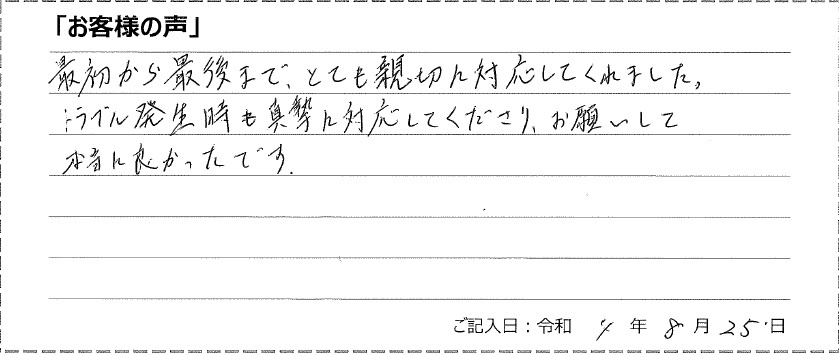 「お客様の声」
最初から最後まで、とても親切に対応してくれました。
トラブル発生時も真摯に対応してくださり、お願いして
本当に良かったです。
ご記入日：令和 4 年 8 月 25 日